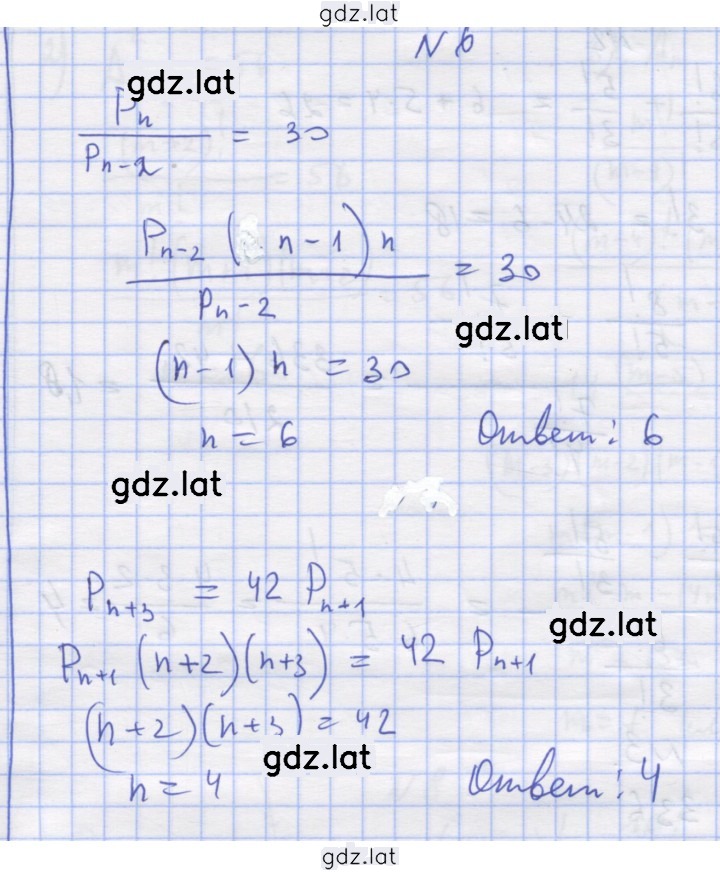 gdz.lat
N 6
gdz.lat
Pn / Pn-2 = 30
Pn-2 (n-1) n / Pn-2 = 30
gdz.lat
(n-1) n = 30
n = 6
Ответ: 6
gdz.lat
Pn+3 = 42 Pn+1
gdz.lat
Pn+1 (n+2)(n+3) = 42 Pn+1
(n+2)(n+3) = 42
gdz.lat
n = 4
Ответ: 4
gdz.lat